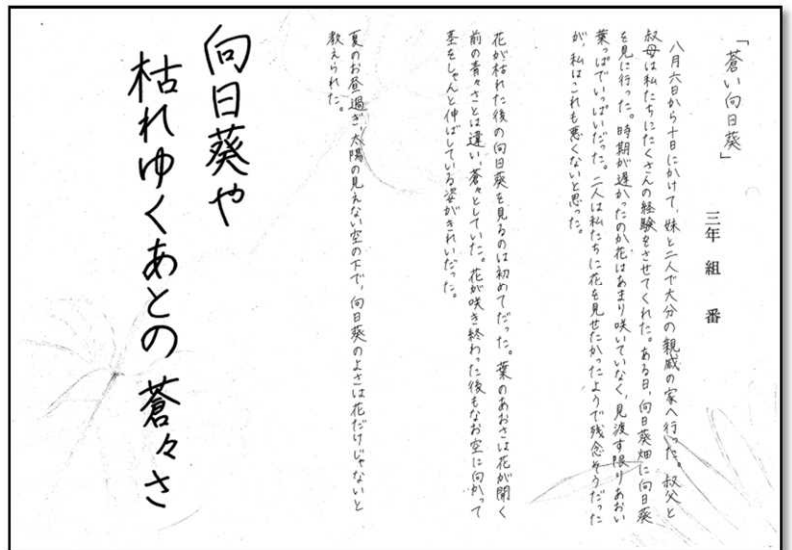 「蒼い向日葵」
三年 組 番
八月六日から十日にかけて、妹と二人で大分の親戚の家へ行った。叔父と
叔母は私たちにたくさんの経験をさせてくれた。ある日、向日葵畑に向日葵
を見に行った。時期が遅かったのか花はあまり咲いていなく、見渡す限りあおい
葉っぱでいっぱいだった。二人は私たちに花を見せたかったようで残念そうだった
が、私はこれも悪くないと思った。
花が枯れた後の向日葵を見るのは初めてだった。葉のあおさは花が開く
前の青々さとは違い、蒼々としていた。花が咲き終わった後もなお空に向かって
茎をしゃんと伸ばしている姿がきれいだった。
夏のお昼過ぎ、太陽の見えない空の下で、向日葵のよさは花だけじゃないと
教えられた。
向日葵や
枯れゆくあとの 蒼々さ